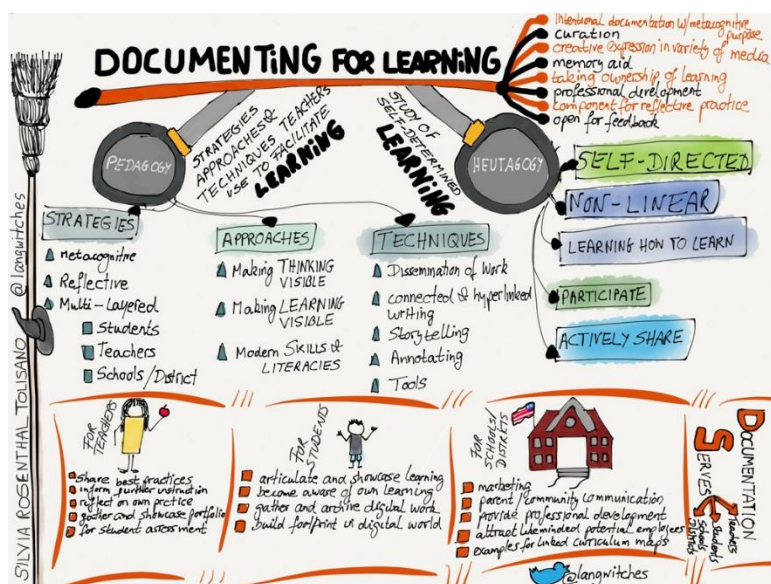 DOCUMENTING FOR LEARNING
Intentional documentation w/metacognitive
purpose
curation
creative expression in variety of media
memory aid
taking ownership of learning
professional development
component for reflective practice
open for feedback
PEDAGOGY
STRATEGIES
APPROACHES &
TECHNIQUES TEACHERS
USE TO FACILITATE
LEARNING
STUDY OF
SELF-DETERMINED
LEARNING
HEUTAGOGY
SELF-DIRECTED
NON-LINEAR
LEARNING HOW TO LEARN
PARTICIPATE
ACTIVELY SHARE
STRATEGIES
Metacognitive
Reflective
Multi-Layered
Students
Teachers
Schools/District
APPROACHES
Making THINKING
VISIBLE
Making LEARNING
VISIBLE
Modern SKILLS &
LITERACIES
TECHNIQUES
Dissemination of Work
connected & hyperlinked
writing
Storytelling
Annotating
Tools
SILVIA ROSENTHAL TOLISANO @langwitches
FOR
TEACHERS
share best practices
inform further instruction
reflect on own prctice
gather and showcase portfolio
for student assessment
FOR
STUDENTS
articulate and showcase learning
become aware of own learning
gather and archive digital work
build footprint in digital world
FOR
SCHOOLS/
DISTRICTS
marketing
parent/community communication
provide professional development
attract likeminded potential employees
examples for linked curriculum maps
DOCUMENTATION
SERVES
Teachers
Students
Schools
Districts
@langwitches